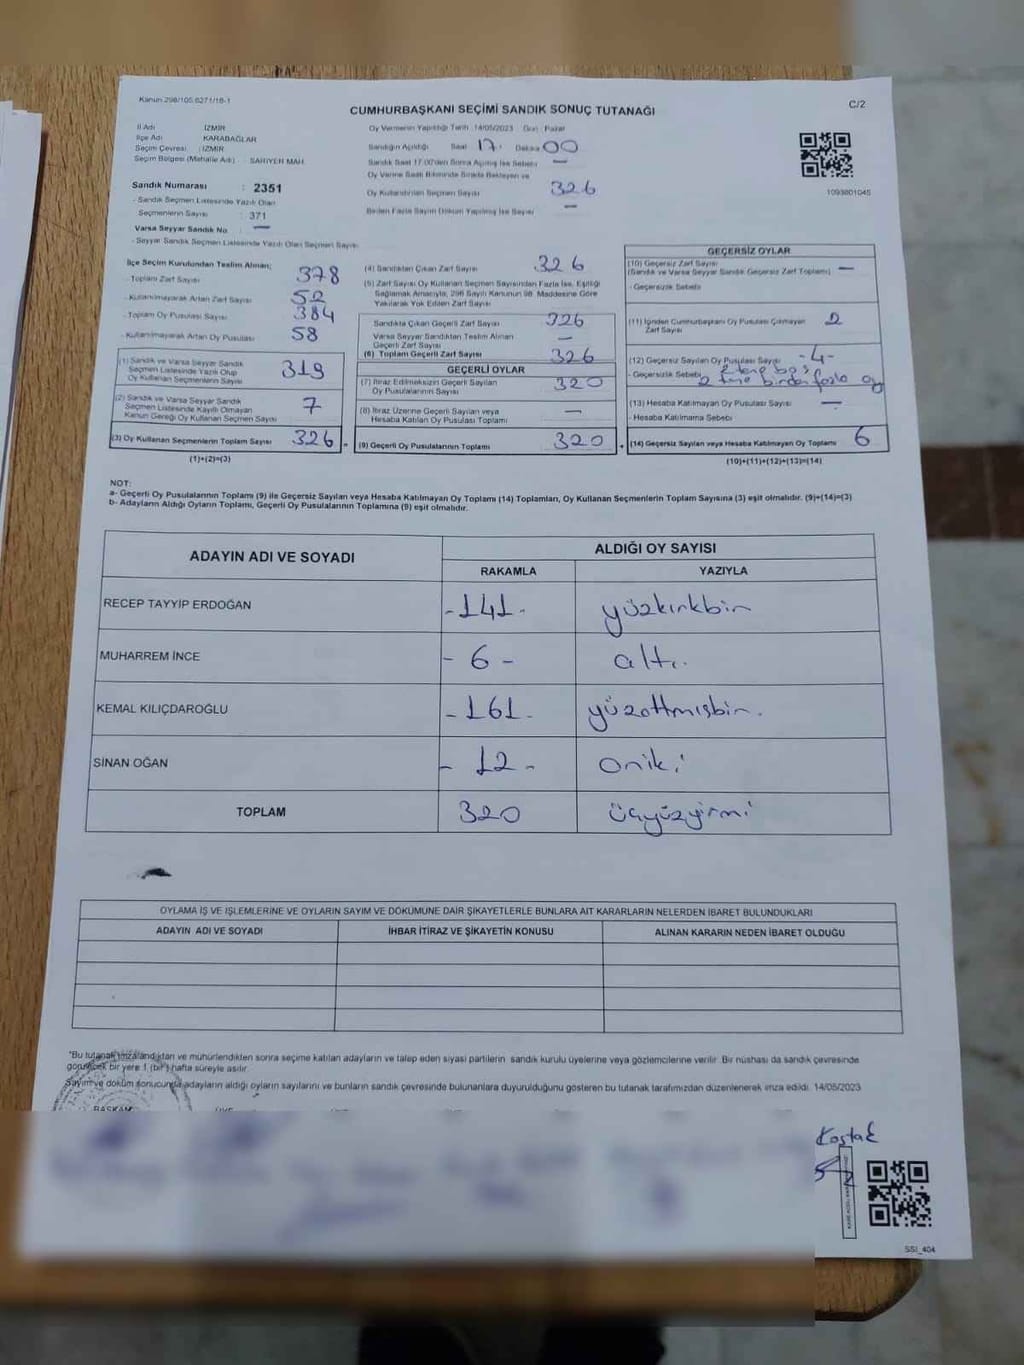 Kanun 298/105.6271/16-1
C/2
CUMHURBAŞKANI SEÇİMİ SANDIK SONUÇ TUTANAĞI
İl Adı İZMİR
İlçe Adı KARABAĞLAR
Seçim Çevresi : İZMİR
Seçim Bölgesi (Mahalle Adı) : SARIYER MAH.
Oy Vermenin Yapıldığı Tarih : 14/05/2023 Gün : Pazar
Sandığın Açıldığı Saat 17. Dakika 00
Sandık Saat 17.00'den Sonra Açılmış İse Sebebi —
Oy Verme Saati Bitiminde Sırada Bekleyen ve
Oy Kullandırılan Seçmen Sayısı 326
Birden Fazla Sayım Döküm Yapılmış İse Sayısı —
1093801045
Sandık Numarası : 2351
- Sandık Seçmen Listesinde Yazılı Olan
Seçmenlerin Sayısı : 371
Varsa Seyyar Sandık No : —
- Seyyar Sandık Seçmen Listesinde Yazılı Olan Seçmen Sayısı
İlçe Seçim Kurulundan Teslim Alınan;
- Toplam Zarf Sayısı 378
- Kullanılmayarak Artan Zarf Sayısı 52
- Toplam Oy Pusulası Sayısı 384
- Kullanılmayarak Artan Oy Pusulası 58
(1) Sandık ve Varsa Seyyar Sandık
Seçmen Listesinde Yazılı Olup
Oy Kullanan Seçmenlerin Sayısı 319
(2) Sandık ve Varsa Seyyar Sandık
Seçmen Listesinde Kayıtlı Olmayan
Kanun Gereği Oy Kullanan Seçmen Sayısı 7
(3) Oy Kullanan Seçmenlerin Toplam Sayısı 326
(1)+(2)=(3)
(4) Sandıktan Çıkan Zarf Sayısı 326
(5) Zarf Sayısı Oy Kullanan Seçmen Sayısından Fazla İse, Eşitliği
Sağlamak Amacıyla, 298 Sayılı Kanunun 98. Maddesine Göre
Yakılarak Yok Edilen Zarf Sayısı
Sandıkta Çıkan Geçerli Zarf Sayısı 326
Varsa Seyyar Sandıktan Teslim Alınan
Geçerli Zarf Sayısı —
(6) Toplam Geçerli Zarf Sayısı 326
GEÇERLİ OYLAR
(7) İtiraz Edilmeksizin Geçerli Sayılan
Oy Pusulalarının Sayısı 320
(8) İtiraz Üzerine Geçerli Sayılan veya
Hesaba Katılan Oy Pusulası Toplamı —
(9) Geçerli Oy Pusulalarının Toplamı 320
GEÇERSİZ OYLAR
(10) Geçersiz Zarf Sayısı
(Sandık ve Varsa Seyyar Sandık Geçersiz Zarf Toplamı) —
- Geçersizlik Sebebi
(11) İçinden Cumhurbaşkanı Oy Pusulası Çıkmayan
Zarf Sayısı 2
(12) Geçersiz Sayılan Oy Pusulası Sayısı -4-
- Geçersizlik Sebebi 2 tane boş
2 tane birden fazla oy
(13) Hesaba Katılmayan Oy Pusulası Sayısı —
- Hesaba Katılmama Sebebi
(14) Geçersiz Sayılan veya Hesaba Katılmayan Oy Toplamı 6
(10)+(11)+(12)+(13)=(14)
NOT:
a- Geçerli Oy Pusulalarının Toplamı (9) ile Geçersiz Sayılan veya Hesaba Katılmayan Oy Toplamı (14) Toplamları, Oy Kullanan Seçmenlerin Toplam Sayısına (3) eşit olmalıdır. (9)+(14)=(3)
b- Adayların Aldığı Oyların Toplamı, Geçerli Oy Pusulalarının Toplamına (9) eşit olmalıdır.
ADAYIN ADI VE SOYADI ALDIĞI OY SAYISI
RAKAMLA YAZIYLA
RECEP TAYYİP ERDOĞAN -141- yüzkırkbir
MUHARREM İNCE - 6 - altı.
KEMAL KILIÇDAROĞLU -161- yüzattmışbir.
SİNAN OĞAN - 12 - oniki
TOPLAM 320 üçyüzyirmi
OYLAMA İŞ VE İŞLEMLERİNE VE OYLARIN SAYIM VE DÖKÜMÜNE DAİR ŞİKAYETLERLE BUNLARA AİT KARARLARIN NELERDEN İBARET BULUNDUKLARI
ADAYIN ADI VE SOYADI İHBAR İTİRAZ VE ŞİKAYETİN KONUSU ALINAN KARARIN NEDEN İBARET OLDUĞU
"Bu tutanak imzalandıktan ve mühürlendikten sonra seçime katılan adayların ve talep eden siyasi partilerin sandık kurulu üyelerine veya gözlemcilerine verilir. Bir nüshası da sandık çevresinde
görülecek bir yere 1 (bir) hafta süreyle asılır.
Sayım ve döküm sonucunda adayların aldığı oyların sayılarını ve bunların sandık çevresinde bulunanlara duyurulduğunu gösteren bu tutanak tarafımızdan düzenlenerek imza edildi. 14/05/2023
BAŞKAN ÜYE
SSI_404